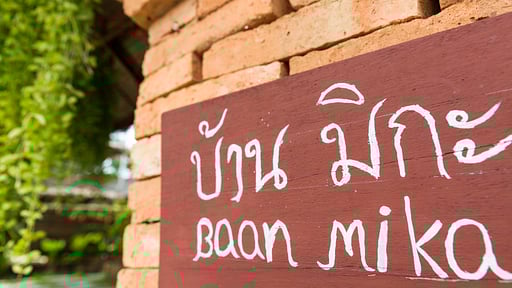 บ้าน มิกะ
BAAN mika